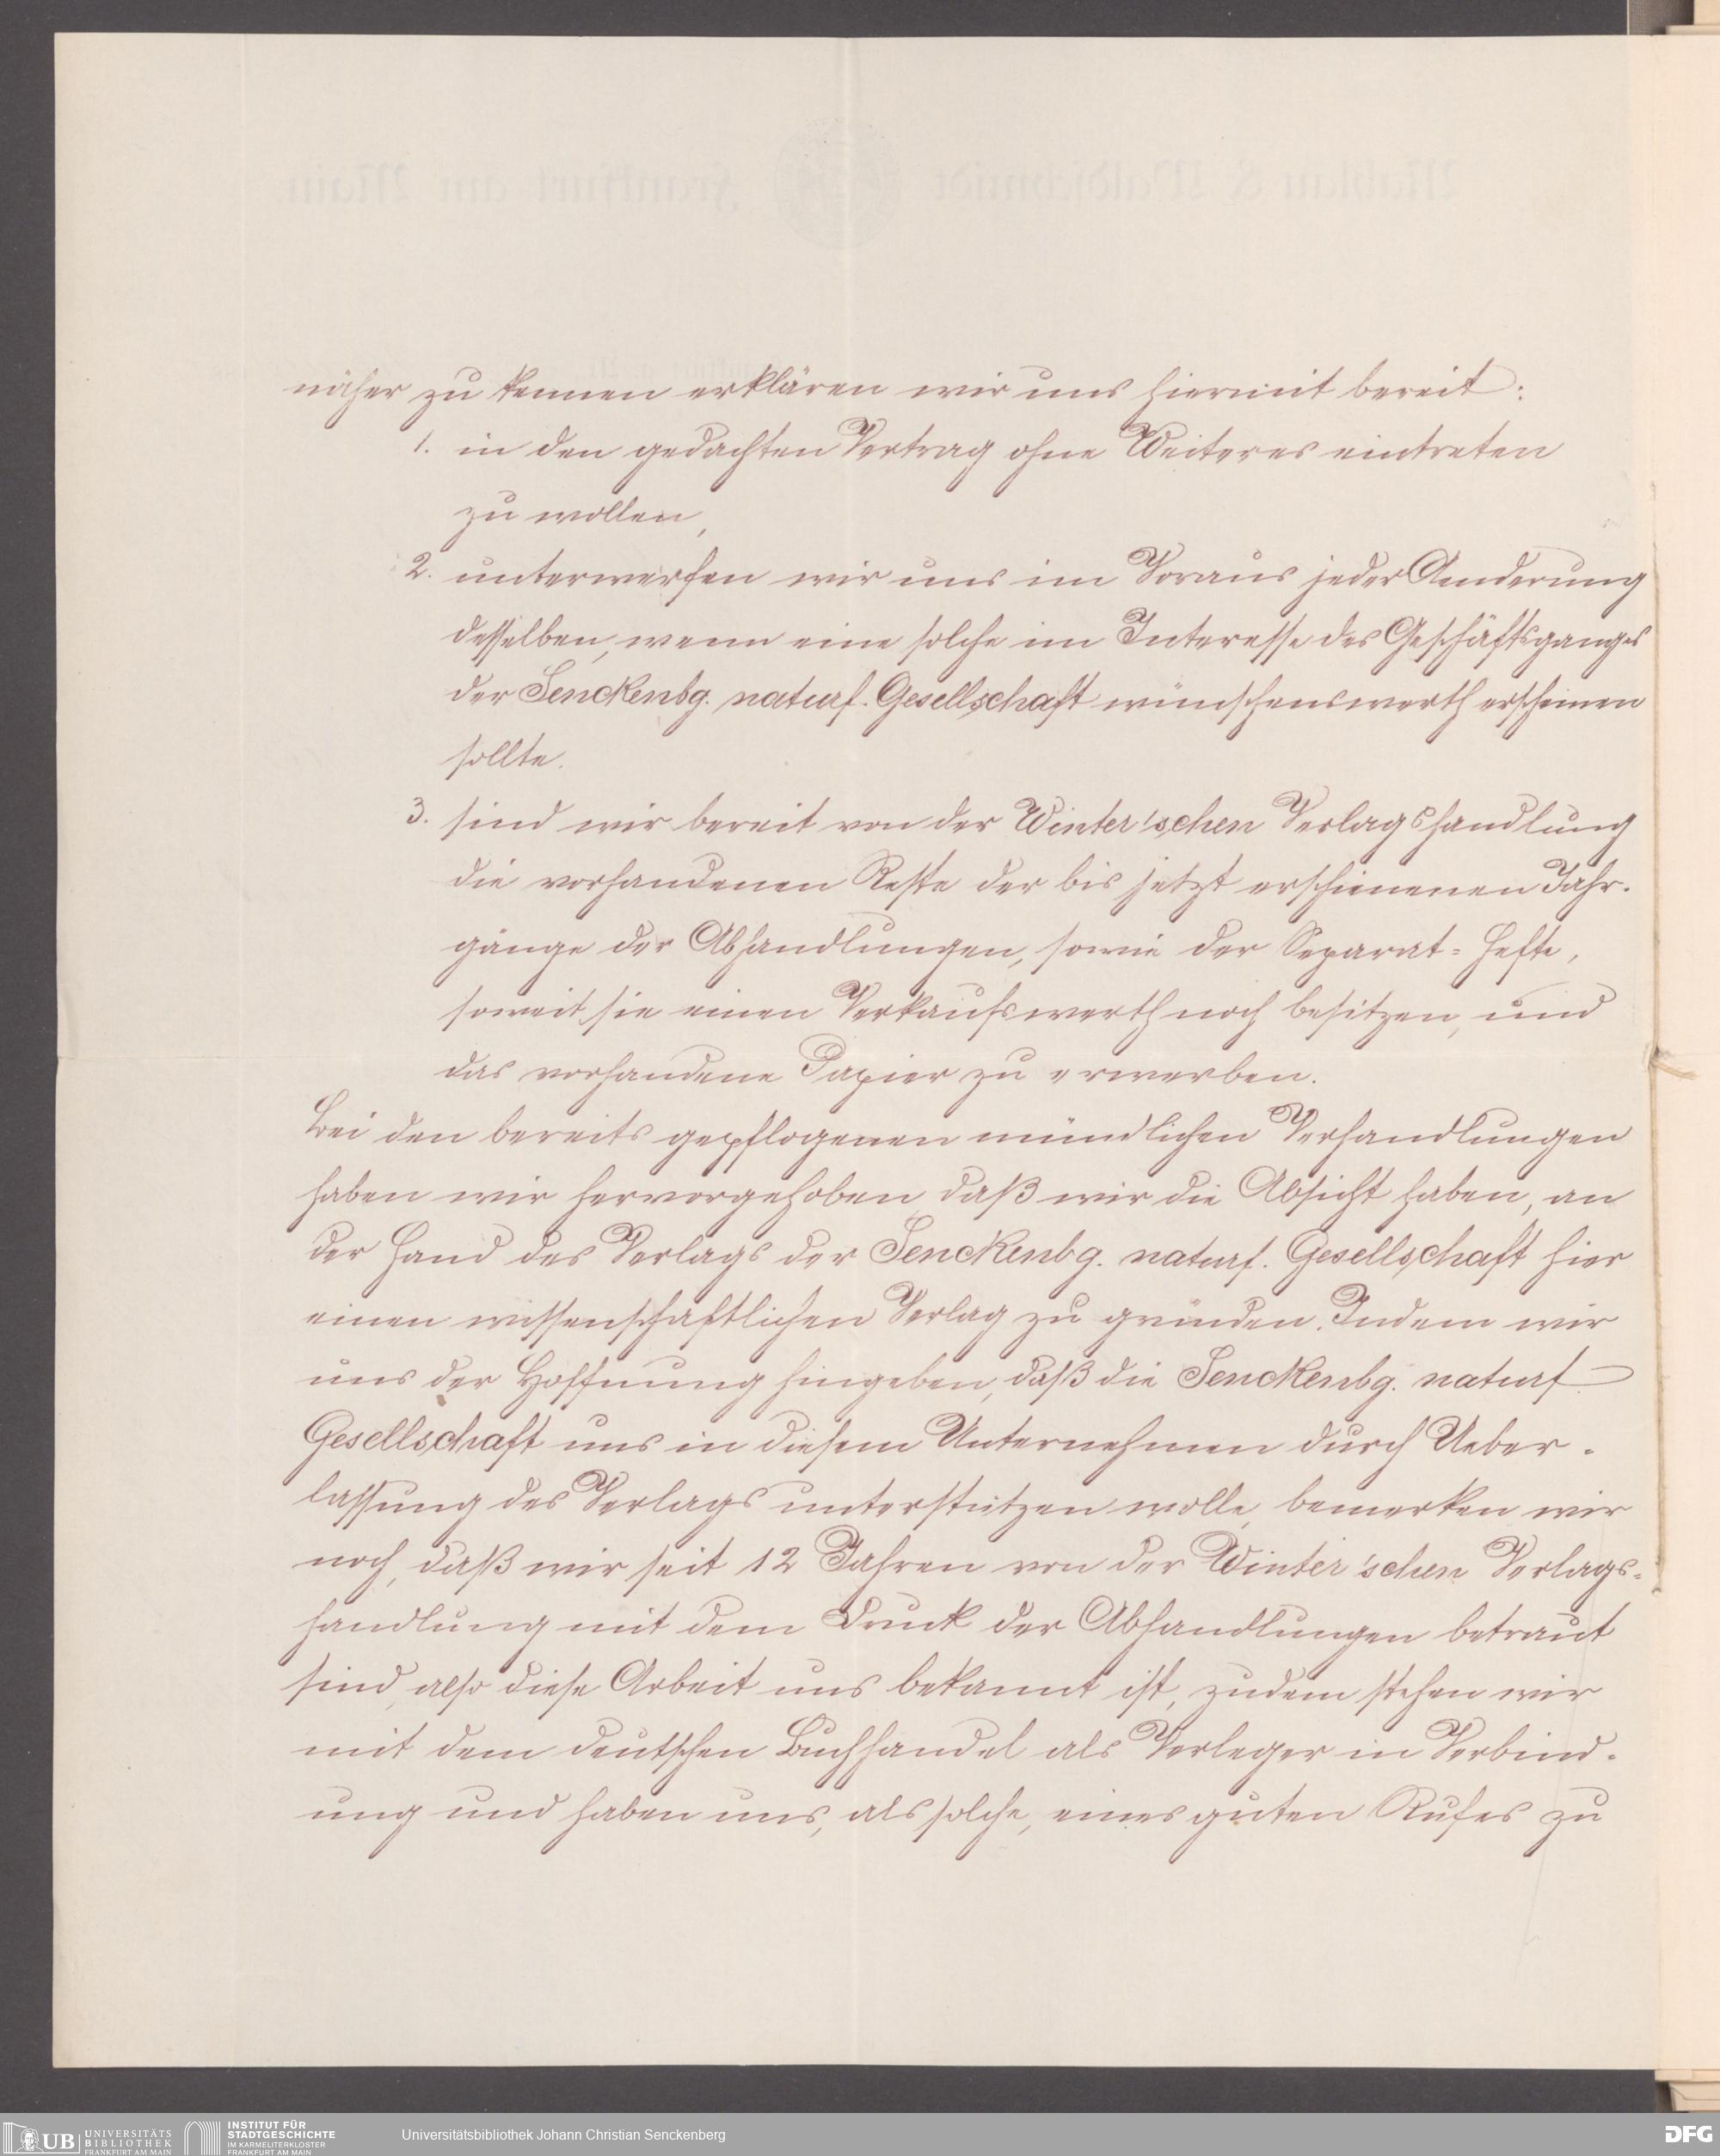 näher zu kennen erklären wir uns hiermit bereit:
1. in den gedachten Vertrag ohne Weiteres eintreten
zu wollen,
2. unterwerfen wir uns im Voraus jeder Aenderung
desselben, wenn eine solche im Interesse des Geschäftsganges
der Senckenbg. naturf. Gesellschaft wünschenswerth erscheinen
sollte.
3. sind wir bereit von der Winter'schen Verlagshandlung
die vorhandenen Reste der bis jetzt erschienenen Jahr-
gänge der Abhandlungen, sowie der Separat-Hefte,
soweit sie einen Verkaufswerth noch besitzen, und
das vorhandene Papier zu erwerben.
Bei den bereits gepflogenen mündlichen Verhandlungen
haben wir hervorgehoben daß wir die Absicht haben, an
der Hand des Verlags der Senckenbg. naturf. Gesellschaft hier
einen wissenschaftlichen Verlag zu gründen. Indem wir
uns der Hoffnung hingeben, daß die Senckenbg. naturf.
Gesellschaft uns in diesem Unternehmen durch Ueber-
lassung des Verlags unterstützen wolle, bemerken wir
noch, daß wir seit 12 Jahren von der Winter'schen Verlags-
handlung mit dem Druck der Abhandlungen betraut
sind, also diese Arbeit uns bekannt ist, zudem stehen wir
mit dem deutschen Buchhandel als Verleger in Verbind-
ung und haben uns, als solche, eines guten Rufes zu
UB UNIVERSITÄTS
BIBLIOTHEK
FRANKFURT AM MAIN
INSTITUT FÜR
STADTGESCHICHTE
IM KARMELITERKLOSTER
FRANKFURT AM MAIN
Universitätsbibliothek Johann Christian Senckenberg
DFG